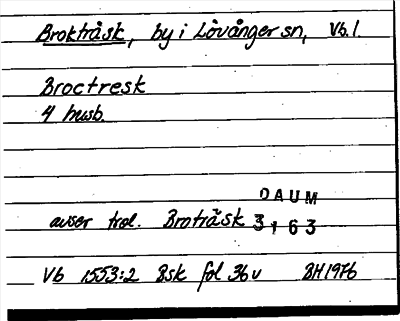 Brokträsk, by i Lövånger sn, Vb. l.
Broctresk
4 husb.
DAUM
avser trol. Broträsk 3163
Vb 1553:2 Bsk fol 36v BH1976